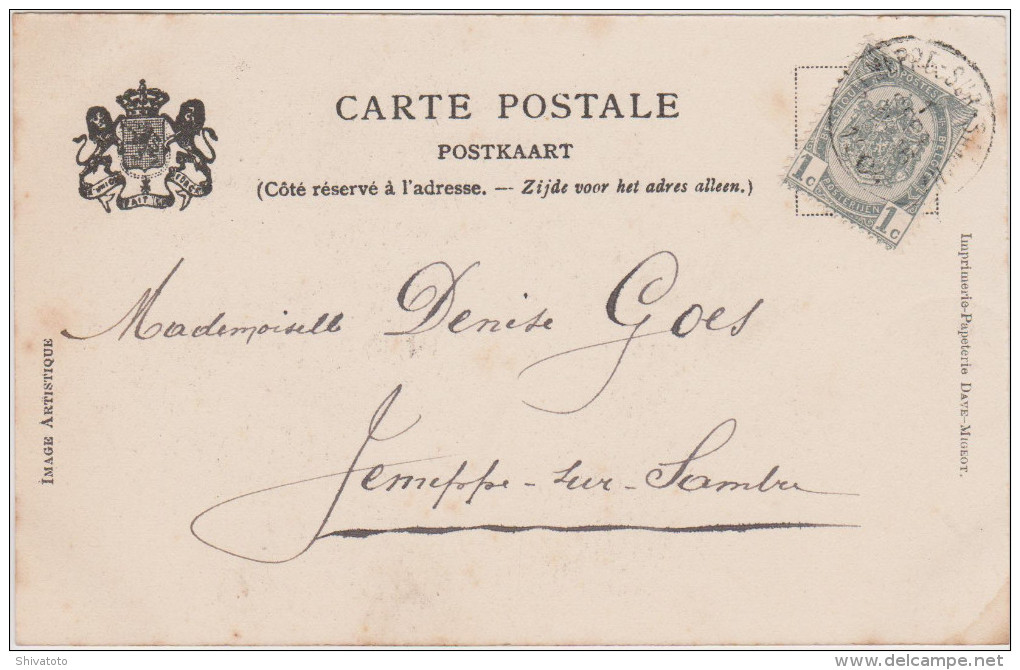 CARTE POSTALE
POSTKAART
(Côté réservé à l'adresse. — Zijde voor het adres alleen.)
FAIT LA FORCE
POSTES
BELGIË
POSTERIJEN
1c 1c
Mademoiselle Denise Goes
Jemeppe-sur-Sambre
IMAGE ARTISTIQUE
Imprimerie-Papeterie DAVE-MIGEOT.
Shivatoto
delcampe.net